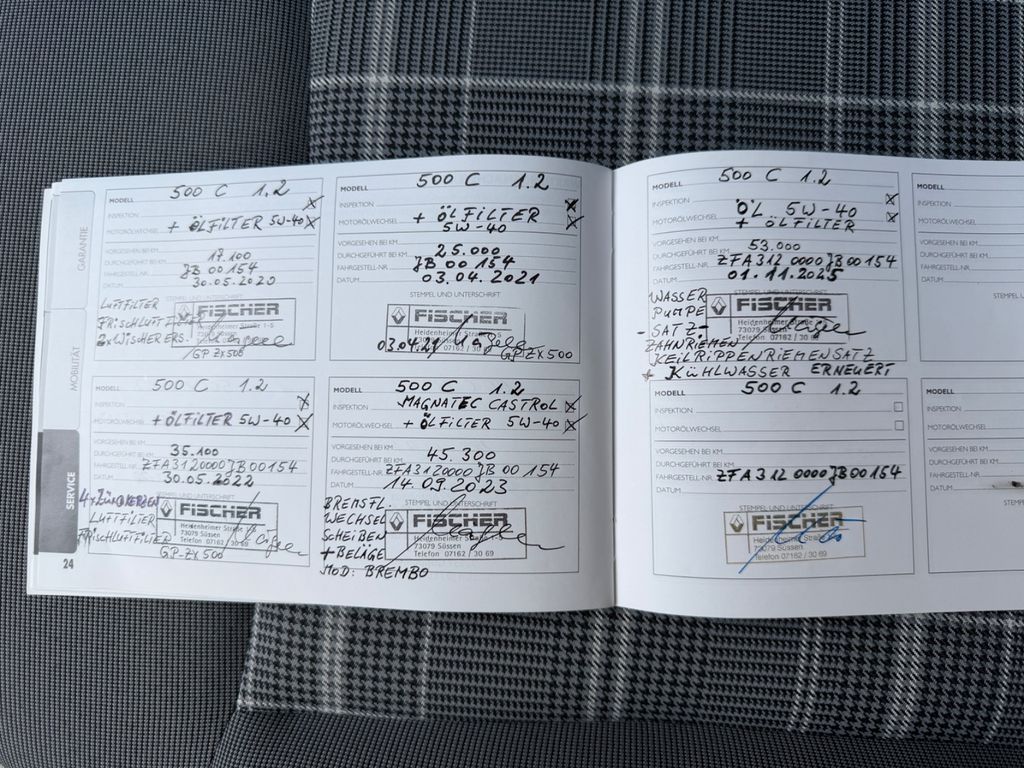 GARANTIE
MOBILITÄT
SERVICE
24
MODELL 500 C 1.2
INSPEKTION X
MOTORÖLWECHSEL + ÖLFILTER 5W-40 X
VORGESEHEN BEI KM
DURCHGEFÜHRT BEI KM 17.100
FAHRGESTELL-NR. JB 00 154
DATUM 30.05.2020
STEMPEL UND UNTERSCHRIFT
LUFTFILTER
FRISCHLUFT
2x WISCHERERS.
FISCHER
Heidenheimer Straße 1-5
73079 Süssen
GP ZX 500
MODELL 500 C 1.2
INSPEKTION X
MOTORÖLWECHSEL + ÖLFILTER X
5W-40
VORGESEHEN BEI KM
DURCHGEFÜHRT BEI KM 25.000
FAHRGESTELL-NR. JB 00 154
DATUM 03.04.2021
STEMPEL UND UNTERSCHRIFT
FISCHER
Heidenheimer Straße 1-5
03.04.21
GP ZX500
MODELL 500 C 1.2
INSPEKTION X
MOTORÖLWECHSEL + ÖLFILTER 5W-40 X
VORGESEHEN BEI KM
DURCHGEFÜHRT BEI KM 35.100
FAHRGESTELL-NR. ZFA3120000JB00154
DATUM 30.05.2022
STEMPEL UND UNTERSCHRIFT
4x ZÜNDKERZEN
LUFTFILTER
FRISCHLUFTFILTER
FISCHER
Heidenheimer Straße
73079 Süssen
Telefon 07162 / 30 69
GP-ZX 500
MODELL 500 C 1.2
INSPEKTION MAGNATEC CASTROL X
MOTORÖLWECHSEL + ÖLFILTER 5W-40 X
VORGESEHEN BEI KM
DURCHGEFÜHRT BEI KM 45.300
FAHRGESTELL-NR. ZFA3120000JB 00 154
DATUM 14.09.2023
STEMPEL UND UNTERSCHRIFT
BREMSFL.
WECHSEL
SCHEIBEN
+ BELÄGE
MOD: BREMBO
FISCHER
Heidenheimer Straße 1-5
73079 Süssen
Telefon 07162 / 30 69
MODELL 500 C 1.2
INSPEKTION ÖL 5W-40 X
MOTORÖLWECHSEL + ÖLFILTER X
VORGESEHEN BEI KM
DURCHGEFÜHRT BEI KM 53.000
FAHRGESTELL-NR. ZFA312 0000JB00154
DATUM 01.11.2025
STEMPEL UND UNTERSCHRIFT
WASSER
PUMPE
- SATZ-
ZAHNRIEMEN
KEILRIPPENRIEMENSATZ
+ KÜHLWASSER ERNEUERT
FISCHER
Heidenheimer Straße 1-5
73079 Süssen
Telefon 07162 / 30 69
MODELL 500 C 1.2
INSPEKTION
MOTORÖLWECHSEL
VORGESEHEN BEI KM
DURCHGEFÜHRT BEI KM
FAHRGESTELL-NR. ZFA312 0000JB00154
DATUM
STEMPEL UND UNTERSCHRIFT
FISCHER
Heidenheimer Straße
73079 Süssen
Telefon 07162 / 30 69
MODELL
INSPEKTION
MOTORÖLWECHSEL
VORGESEHEN BEI KM
DURCHGEFÜHRT BEI KM
FAHRGESTELL-NR.
DATUM
STEMPEL U
MODELL
INSPEKTION
MOTORÖLWECHSEL
VORGESEHEN BEI KM
DURCHGEFÜHRT BEI KM
FAHRGESTELL-NR.
DATUM
STEMPEL